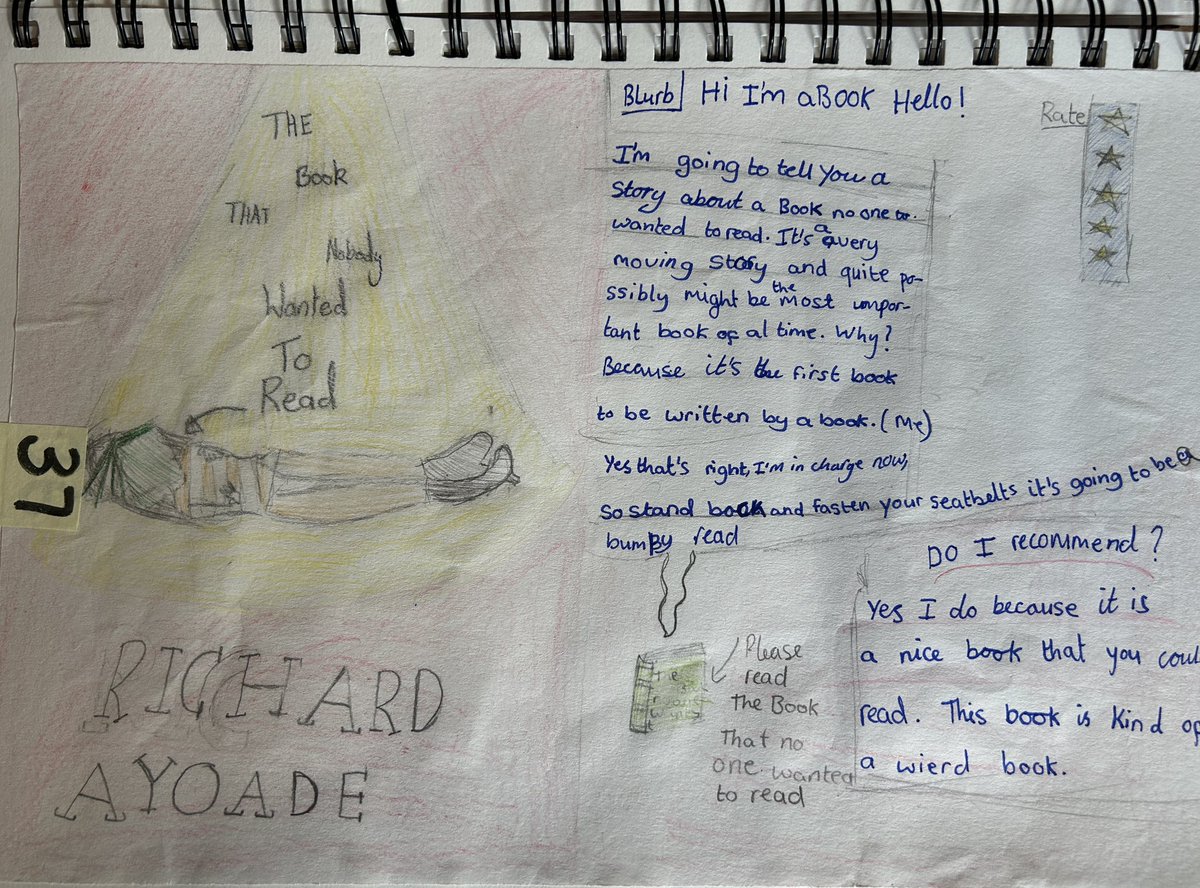 THE
Book
THAT
Nobody
Wanted
To
Read
37
RICHARD
AYOADE
Blurb Hi I'm a Book Hello!
I'm going to tell you a
story about a Book no one
wanted to read. It's a very
moving story and quite po-
ssibly might be the most impor-
tant book of al time. Why?
Because it's the first book
to be written by a book. (Me)
Yes that's right, I'm in charge now,
so stand back and fasten your seatbelts it's going to be a
bumpy read
Rate
Please
read
The Book
That no
one wanted
to read
DO I recommend?
Yes I do because it is
a nice book that you coul
read. This book is kind of
a wierd book.